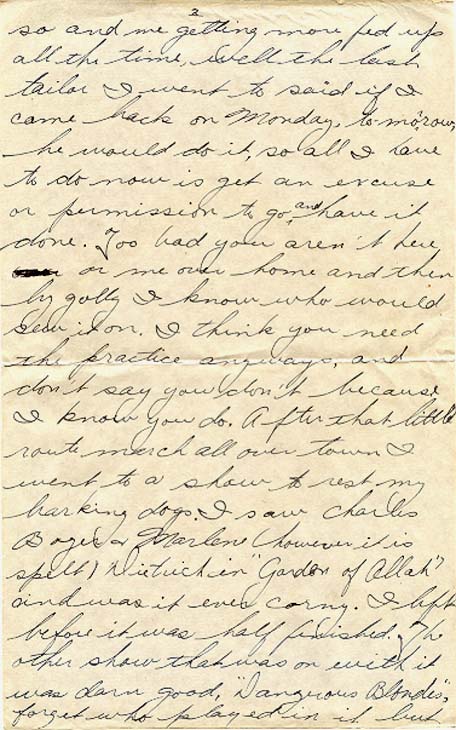 2
so and me getting more fed up
all the time, well the last
tailor I went to said if I
came back on Monday, to-morow,
he would do it, so all I have
to do now is get an excuse
or permission to go and have it
done. Too bad your aren't here
or me over home and then
by golly I know who would
sew it on. I think you need
the practice anyways, and
don't say you don't because
I know you do. After that little
route march all over town I
went to a show to rest my
barking dogs. I saw Charles
Boyer & Marlene (however it is
spelt) Dietrich in "Garden of Allah"
and was it ever corny. I left
before it was half finished. The
other show that was on with it
was darn good, "Dangerous Blondes",
forget who played in it but